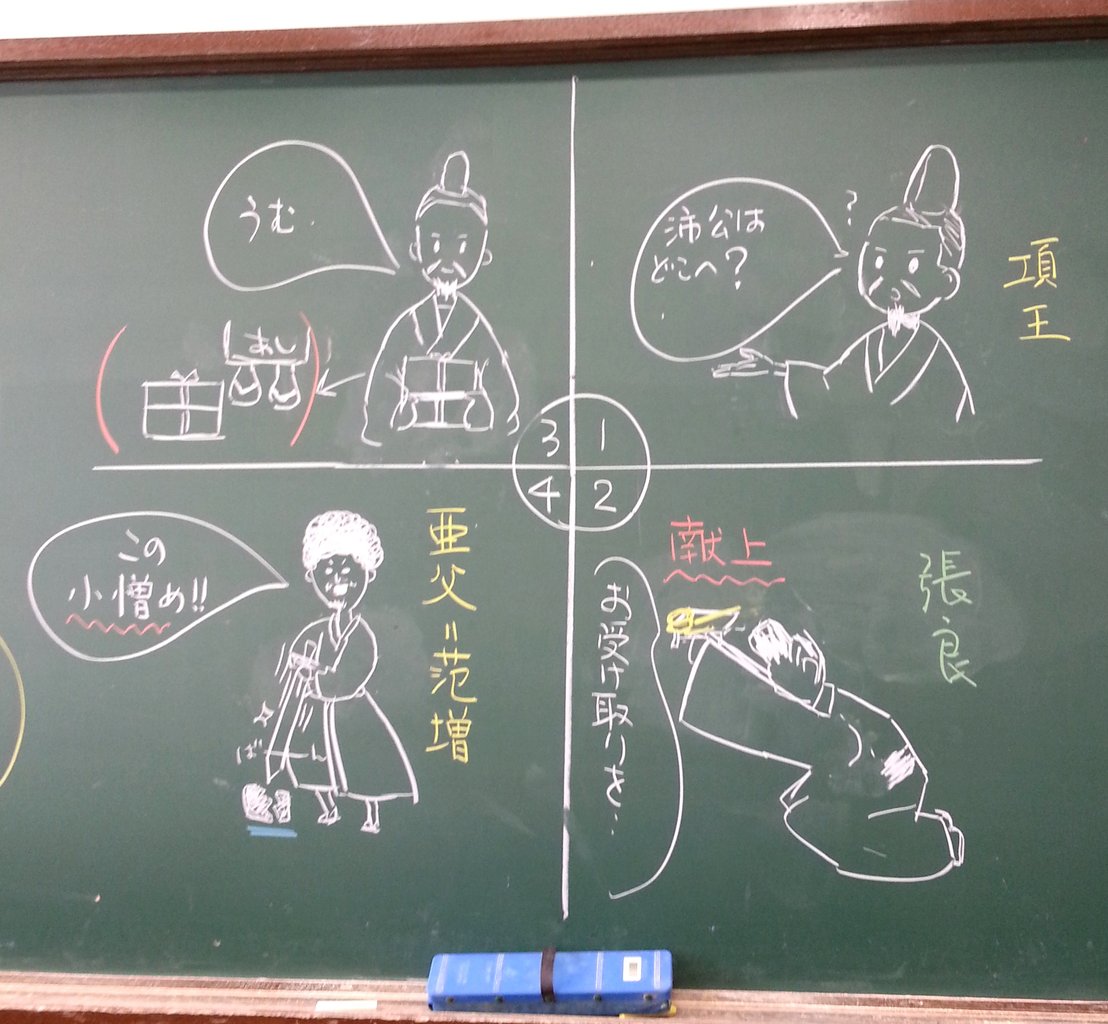 沛公は
どこへ?
?
項王
1
献上
お受け取りを‥
張良
2
うむ.
あし
3
この
小憎め!!
亜父=范増
ばーん
4